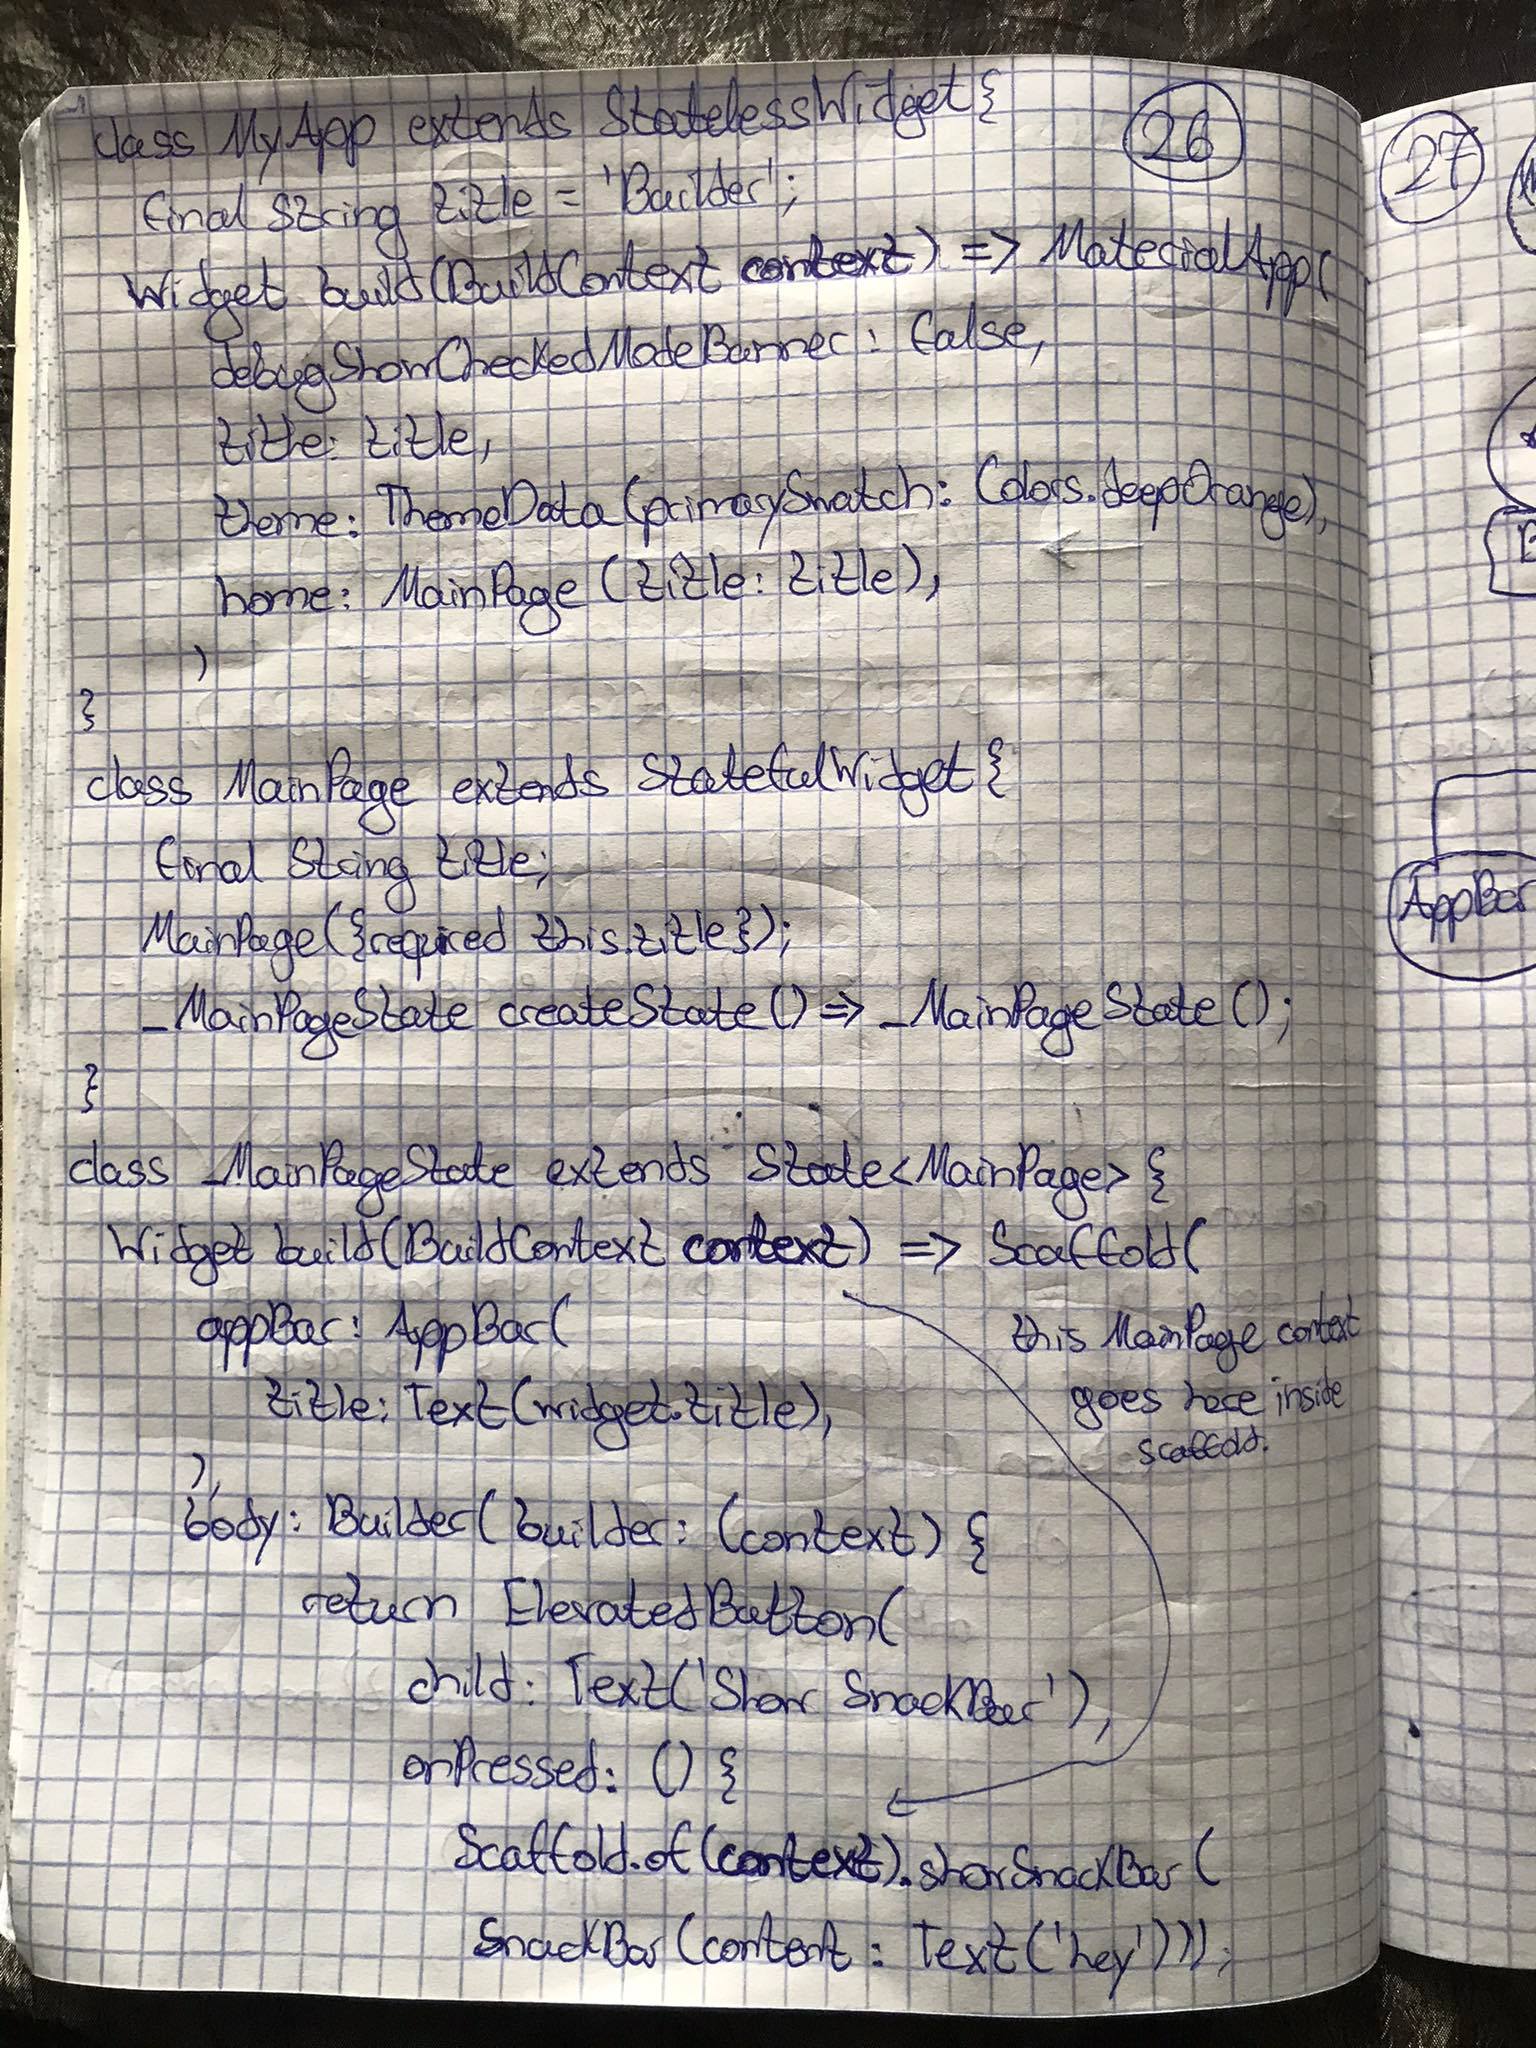 class MyApp extends StatelessWidget{
26
final String title = 'Builder';
Widget build(BuildContext context) => MaterialApp(
debugShowCheckedModeBanner: false,
title: title,
theme: ThemeData(primarySwatch: Colors.deepOrange),
home: MainPage (title: title),
)
}
class MainPage extends StatefulWidget{
final String title;
MainPage({required this.title});
_MainPageState createState() => _MainPageState();
}
class _MainPageState extends State<MainPage> {
Widget build(BuildContext context) => Scaffold(
appBar: AppBar(
title: Text(widget.title),
),
this MainPage context
goes here inside
scaffold.
body: Builder( builder: (context) {
return ElevatedButton(
child: Text('Show SnackBar'),
onPressed: () {
Scaffold.of(context).showSnackBar(
SnackBar(content: Text('hey')));
27
AppBar